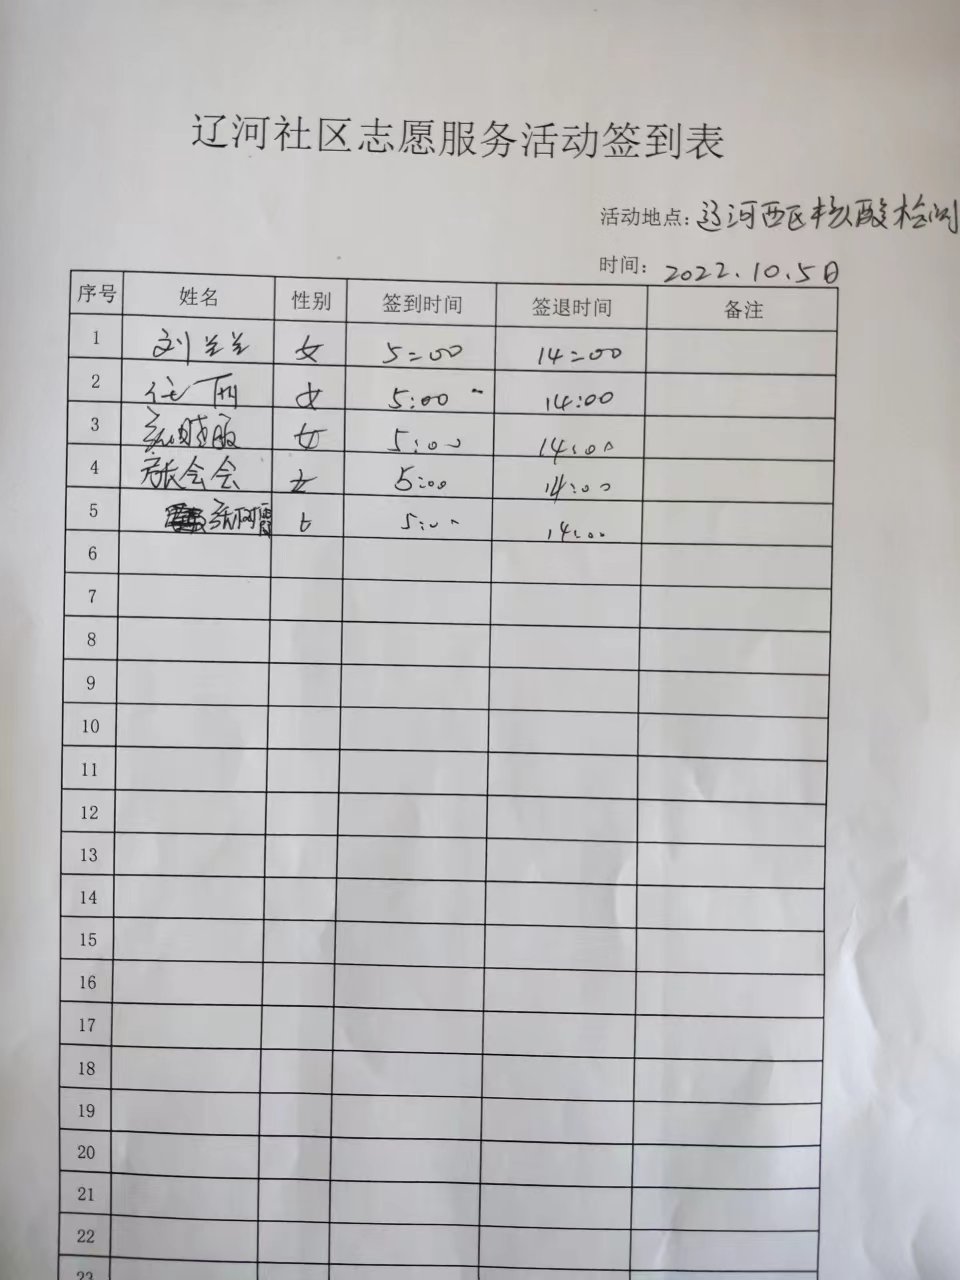 辽河社区志愿服务活动签到表
活动地点：辽河西区核酸检测
时间：2022.10.5日
序号 姓名 性别 签到时间 签退时间 备注
1 刘兰兰 女 5:00 14:00
2 任丽 女 5:00 14:00
3 女 5:00 14:00
4 张会会 女 5:00 14:00
5 女 5:00 14:00
6
7
8
9
10
11
12
13
14
15
16
17
18
19
20
21
22
23